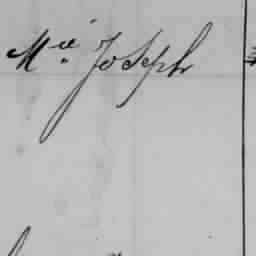 Mce. Joseph